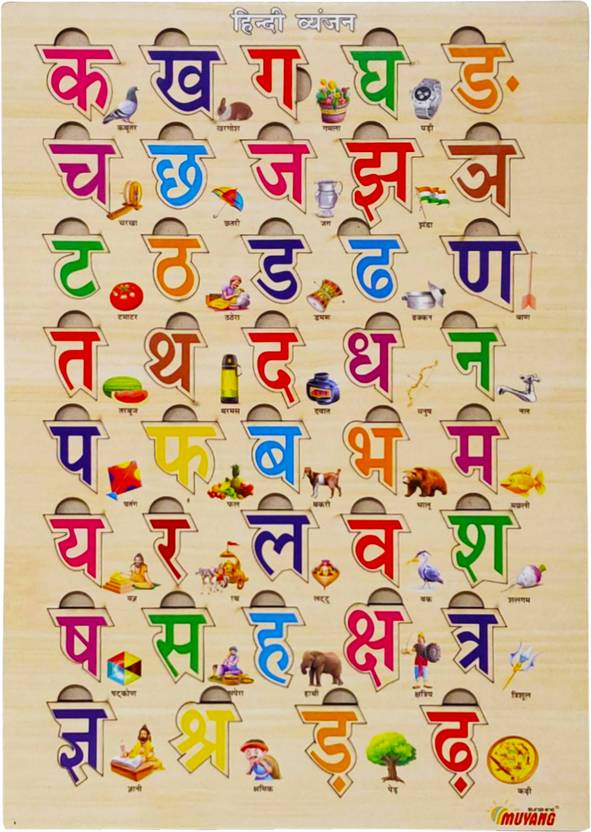 हिन्दी व्यंजन
क ख ग घ ङ
कबूतर खरगोश गमला घड़ी
च छ ज झ ञ
चरखा छतरी जग झंडा
ट ठ ड ढ ण
टमाटर ठठेरा डमरू ढक्कन बाण
त थ द ध न
तरबूज थरमस दवात धनुष नल
प फ ब भ म
पतंग फल बकरी भालू मछली
य र ल व श
यज्ञ रथ लट्टू वक शलगम
ष स ह क्ष त्र
षट्कोण सपेरा हाथी क्षत्रिय त्रिशूल
ज्ञ श्र ड़ ढ़
ज्ञानी श्रमिक पेड़ कढ़ी
MUYANG